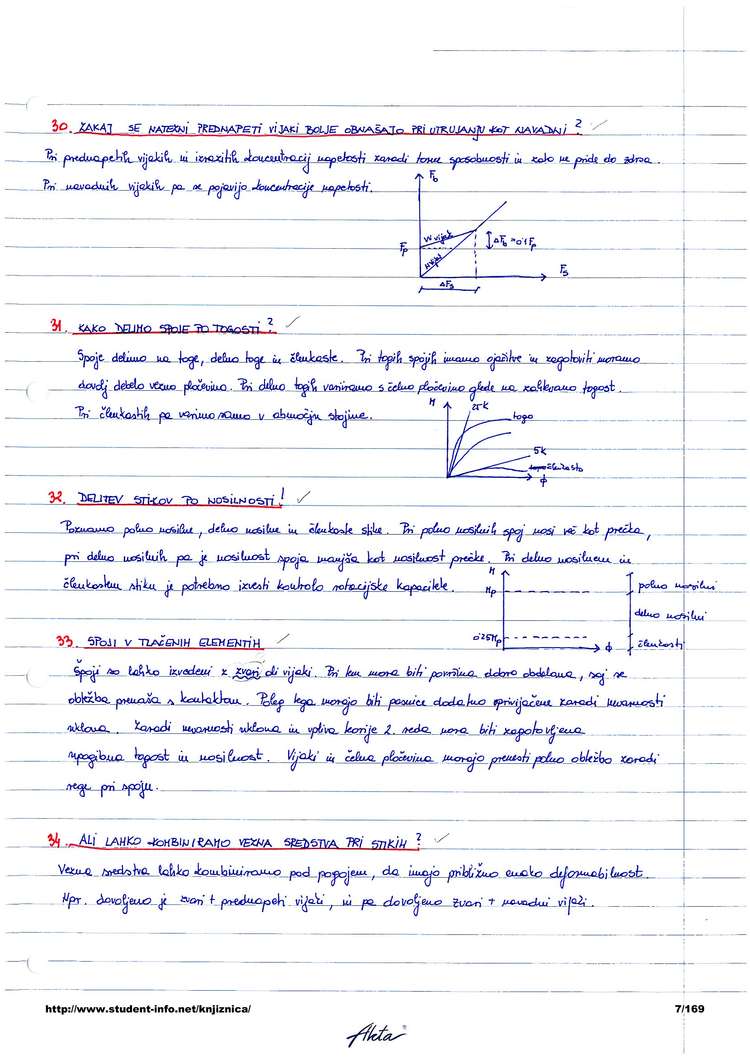 30. ZAKAJ SE NATEZNI PREDNAPETI VIJAKI BOLJE OBNAŠAJO PRI UTRUJANJU KOT NAVADNI?
Pri prednapetih vijakih ni izrazitih koncentracij napetosti zaradi torne sposobnosti in zato ne pride do zdrsa.
Pri navadnih vijakih pa se pojavijo koncentracije napetosti.
Fb
Fp
v vijak
ΔFb ≈ 0.1Fp
Fs
ΔFs
31. KAKO DELIMO SPOJE PO TOGOSTI?
Spoje delimo na toge, delno toge in členkaste. Pri togih spojih imamo ojačitve in zagotoviti moramo
dovolj debelo vezno pločevino. Pri delno togih variiramo s čelno pločevino glede na zahtevano togost.
Pri členkastih pa varimo samo v območju stojine.
M
25K
togo
5K
členkasto
ϕ
32. DELITEV STIKOV PO NOSILNOSTI!
Poznamo polno nosilne, delno nosilne in členkaste stike. Pri polno nosilnih spoj nosi več kot prečka,
pri delno nosilnih pa je nosilnost spoja manjša kot nosilnost prečke. Pri delno nosilnem in
členkastem stiku je potrebno izvesti kontrolo rotacijske kapacitete.
M
Mp
0.25Mp
ϕ
polno nosilni
delno nosilni
členkasti
33. SPOJI V TLAČENIH ELEMENTIH
Spoji so lahko izvedeni z zvari ali vijaki. Pri tem mora biti površina dobro obdelana, saj se
obtežba prenaša s kontaktom. Poleg tega morajo biti pasnice dodatno privijačene zaradi nevarnosti
uklona. Zaradi nevarnosti uklona in vpliva teorije 2. reda mora biti zagotovljena
upogibna togost in nosilnost. Vijaki in čelna pločevina morajo prenesti polno obtežbo zaradi
rege pri spoju.
34. ALI LAHKO KOMBINIRAMO VEZNA SREDSTVA PRI STIKIH?
Vezna sredstva lahko kombiniramo pod pogojem, da imajo približno enako deformabilnost.
Npr. dovoljeno je zvari + prednapeti vijaki, ni pa dovoljeno zvari + navadni vijaki.
http://www.student-info.net/knjiznica/
7/169
Akta